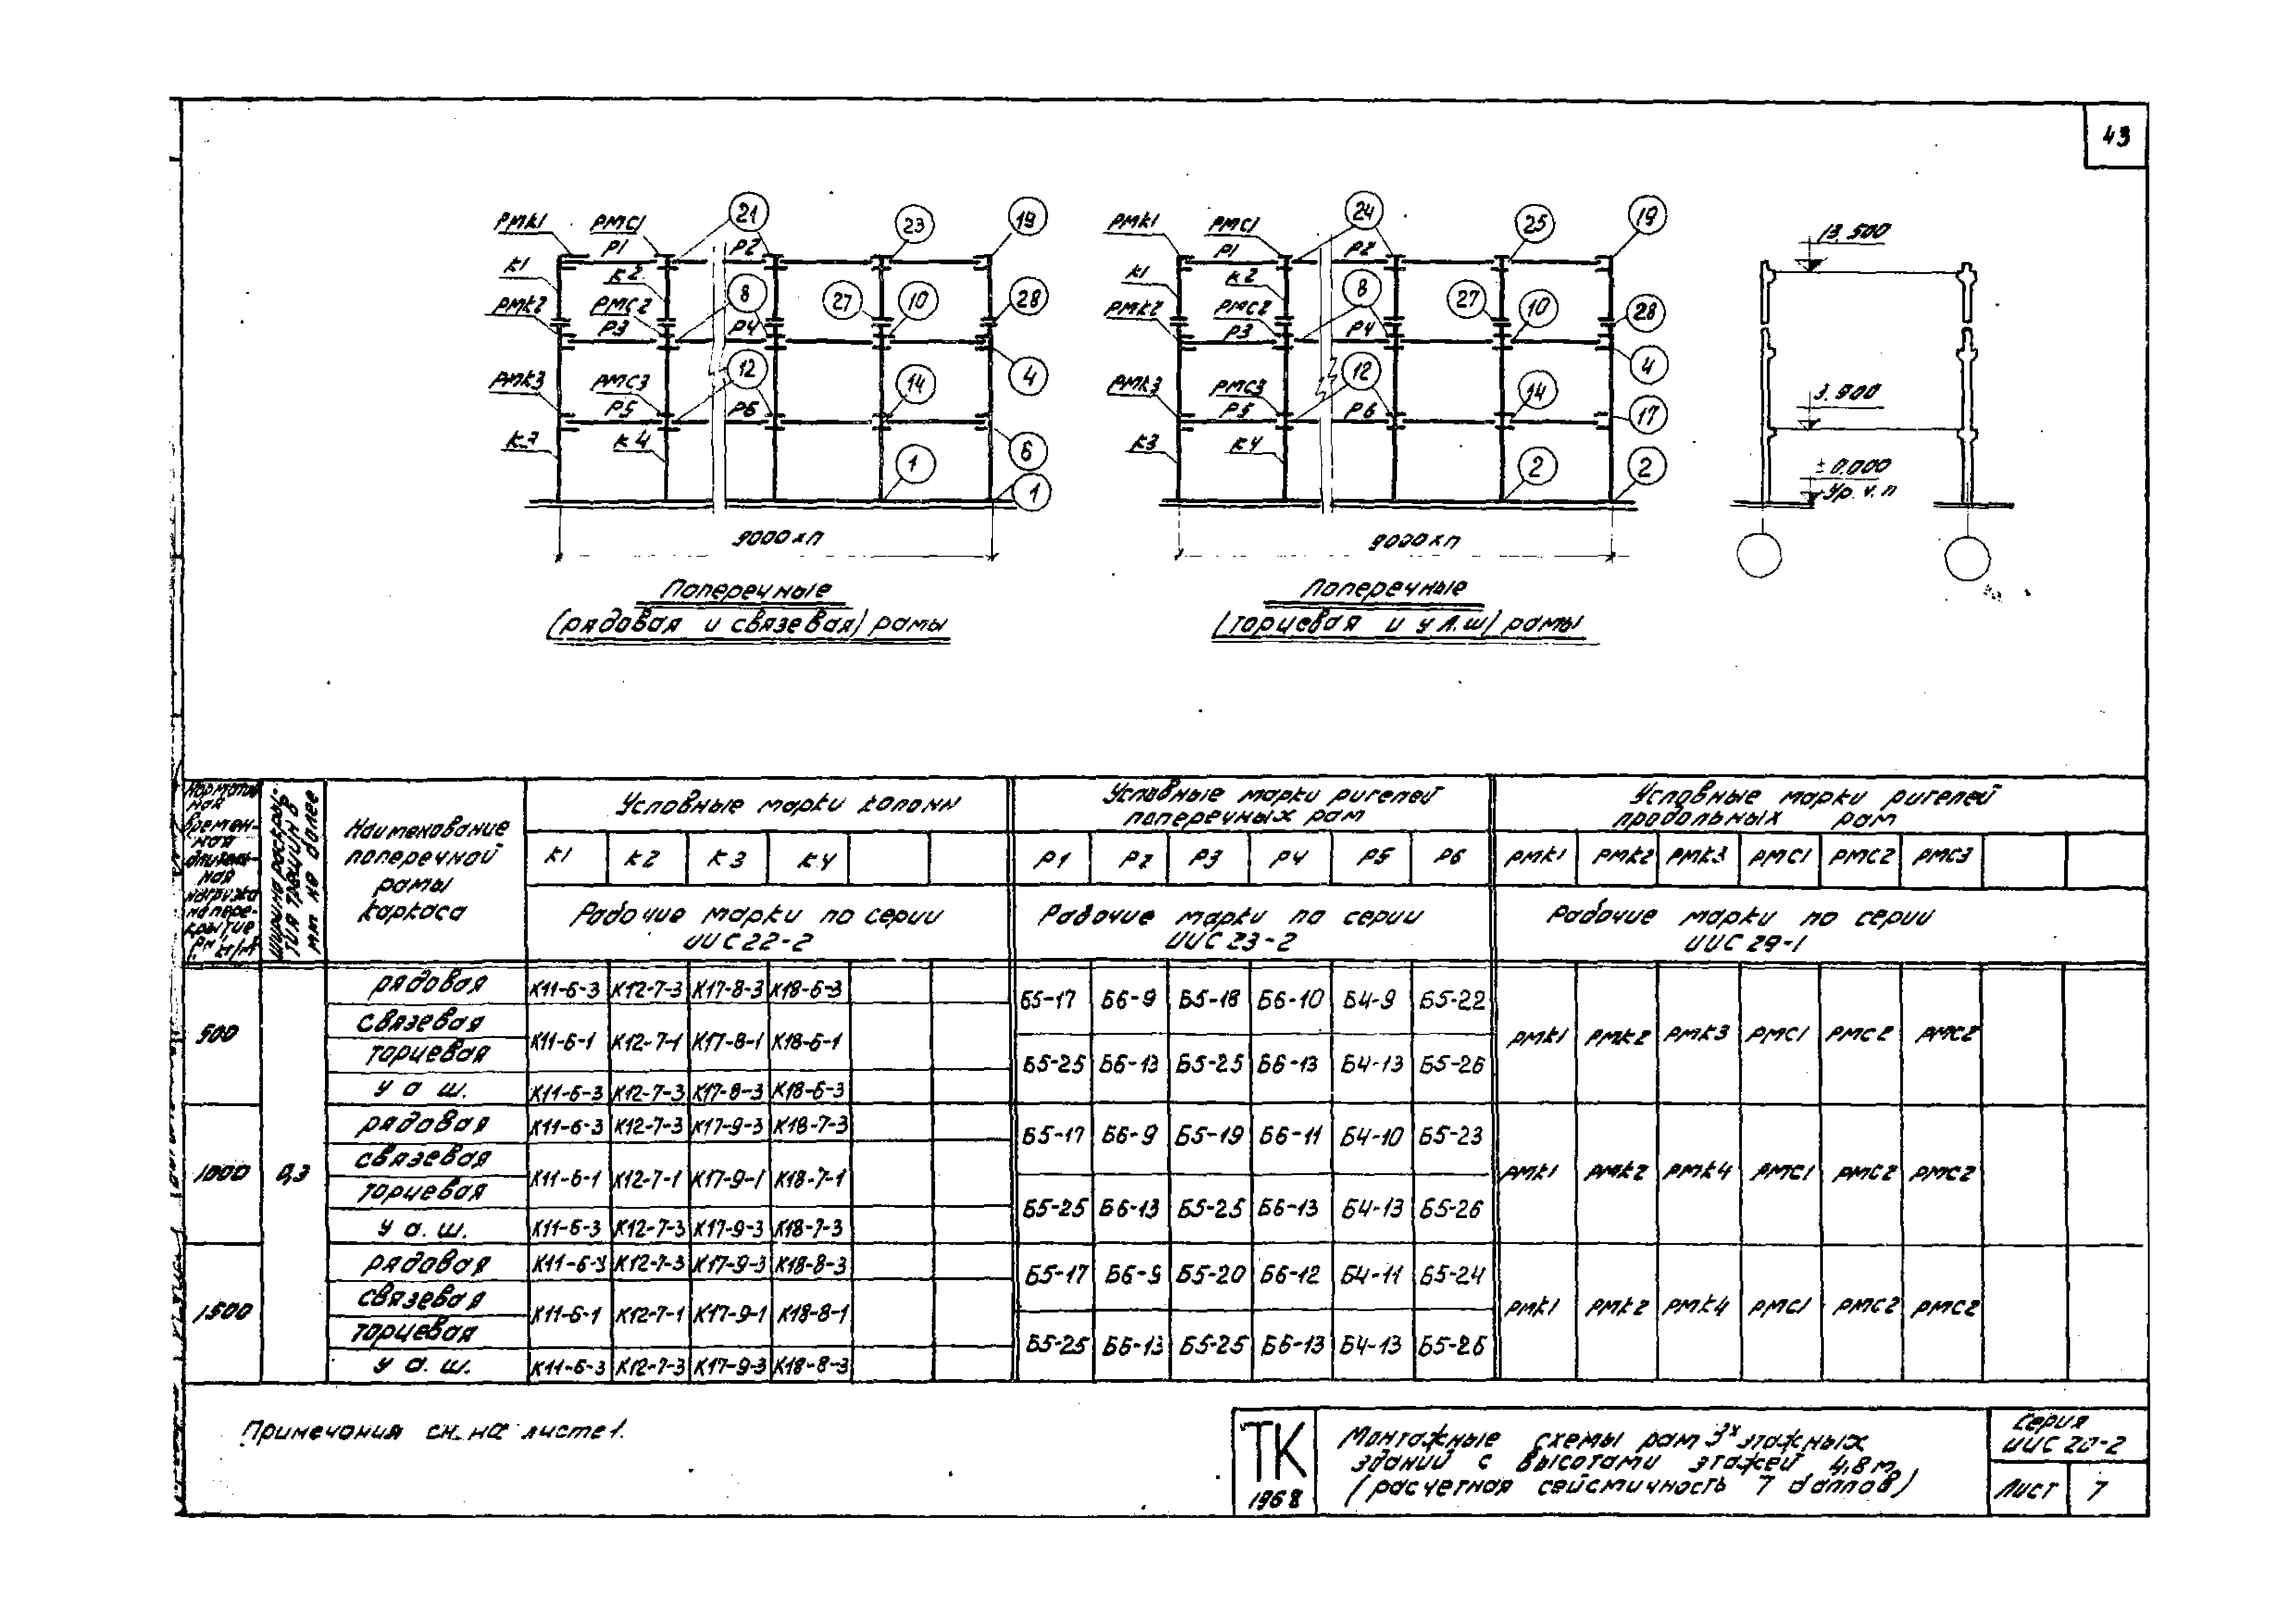 43
РМК1 РМС1 21 23 19
Р1 Р2
К1 К2
РМК2 РМС2 8 27 10 28
Р3 Р4
РМК3 РМС3 12 14 4
Р5 Р6
К3 К4 1 6
1
9000×п
Поперечные
(рядовая и связевая) рамы
РМК1 РМС1 24 25 19
Р1 Р2
К1 К2
РМК2 РМС2 8 27 10 28
Р3 Р4
РМК3 РМС3 12 14 4
Р5 Р6 17
К3 К4 2 2
9000×п
Поперечные
(торцевая и у А.Ш) рамы
13.500
3.900
±0.000
Ур.ч.п
Норматив-
ная
времен-
ная
длитель-
ная
нагрузка
на пере-
крытие
Ширина раскры-
тия трещин в
мм не более
Наименование
поперечной
рамы
каркаса
Условные марки колонн
К1 К2 К3 К4
Рабочие марки по серии
ИИС22-2
Условные марки ригелей
поперечных рам
Р1 Р2 Р3 Р4 Р5 Р6
Рабочие марки по серии
ИИС 23-2
Условные марки ригелей
продольных рам
РМК1 РМК2 РМК3 РМС1 РМС2 РМС3
Рабочие марки по серии
ИИС 29-1
500
рядовая К11-6-3 К12-7-3 К17-8-3 К18-6-3
Б5-17 Б6-9 Б5-18 Б6-10 Б4-9 Б5-22
связевая
торцевая К11-6-1 К12-7-1 К17-8-1 К18-6-1
Б5-25 Б6-13 Б5-25 Б6-13 Б4-13 Б5-26
у а ш. К11-6-3 К12-7-3 К17-8-3 К18-6-3
РМК1 РМК2 РМК3 РМС1 РМС2 РМС2
1000 0,3
рядовая К11-6-3 К12-7-3 К17-9-3 К18-7-3
Б5-17 Б6-9 Б5-19 Б6-11 Б4-10 Б5-23
связевая
торцевая К11-6-1 К12-7-1 К17-9-1 К18-7-1
Б5-25 Б6-13 Б5-25 Б6-13 Б4-13 Б5-26
у а. ш. К11-6-3 К12-7-3 К17-9-3 К18-7-3
РМК1 РМК2 РМК4 РМС1 РМС2 РМС2
1500
рядовая К11-6-3 К12-7-3 К17-9-3 К18-8-3
Б5-17 Б6-9 Б5-20 Б6-12 Б4-11 Б5-24
связевая
торцевая К11-6-1 К12-7-1 К17-9-1 К18-8-1
Б5-25 Б6-13 Б5-25 Б6-13 Б4-13 Б5-26
у а. ш. К11-6-3 К12-7-3 К17-9-3 К18-8-3
РМК1 РМК2 РМК4 РМС1 РМС2 РМС2
Примечания см. на листе 1.
ТК
1968
Монтажные схемы рам 3х этажных
зданий с высотами этажей 4,8 м
(расчетная сейсмичность 7 баллов)
Серия
ИИС 20-2
Лист 7